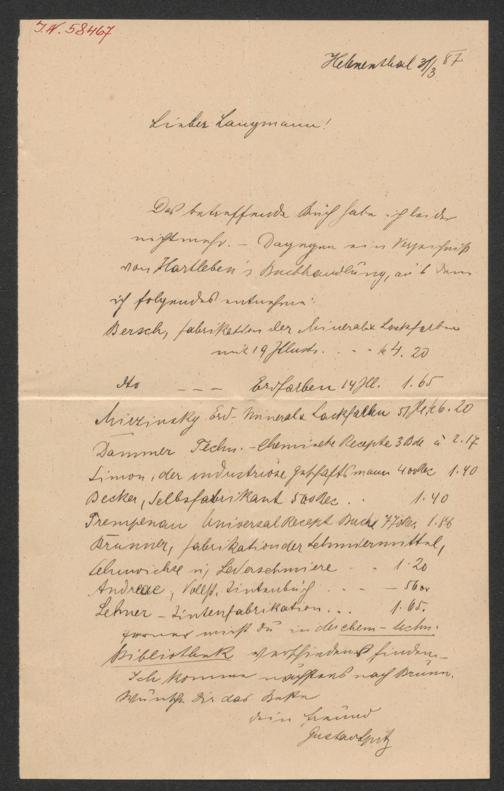 J.N. 58467
Helenenthal 31/3 87
Lieber Langmann!
Das betreffende Buch habe ich leider
nicht mehr. – Dagegen ein Verzeichniß
von Hartleben's Buchhandlung, aus dem
ich folgendes entnehme:
Bersch, Fabrikation der Mineral u Lackfarben
mit 19 Illust. . . - 4. 20
dto - - - Erdfarben 14 Ill. 1. 65
Mierzinsky Erd- Mineral u Lackfarben 6. 20
Dammer Techn. - Chemische Recepte 3 Bde a 2. 17
Simon, der industriöse Geschäftsmann 400 Rec 1. 40
Becker, Selbstfabrikant 500 Rec . . 1. 40
Trempenau Universal Recept Buch 1. 86
Brunner, Fabrikation der Schmiermittel,
Schuhwichse u, Lederschmiere - - 1. 20
Andreae, Vollst. Tintenbuch . . . - 56
Lehner - Tintenfabrikation . . . 1. 65.
ferner wirst du in der chem - techn.
Bibliothek verschiedenes finden –
Ich komme nächstens nach Brünn.
Wünsche dir das Beste
dein Freund
Gustav Spitz